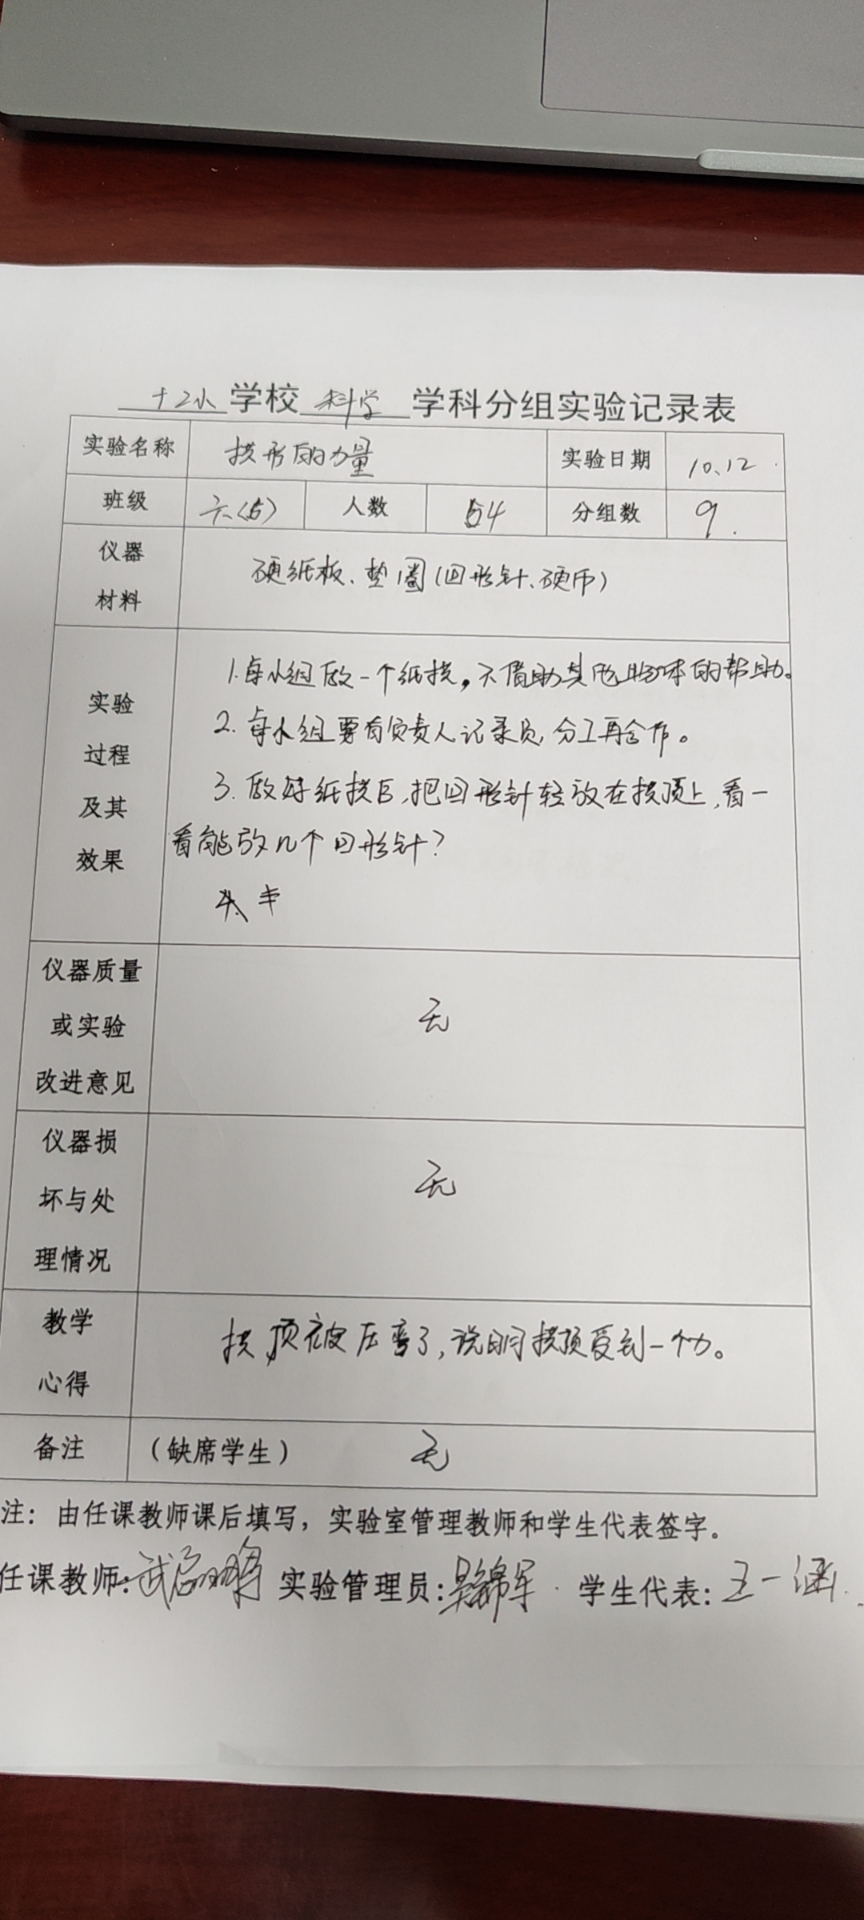 十二小学校 科学 学科分组实验记录表
实验名称 拱形的力量 实验日期 10.12
班级 六(5) 人数 54 分组数 9.
仪器材料 硬纸板、垫圈(回形针、硬币)
实验过程及其效果
1.每小组做一个纸拱,不借助其它物体的帮助。
2.每小组要有负责人记录员,分工再合作。
3.做好纸拱后,把回形针轻放在拱顶上,看一
看能放几个回形针?
仪器质量或实验改进意见 无
仪器损坏与处理情况 无
教学心得 拱顶被压弯了,说明拱顶受到一个力。
备注 (缺席学生) 无
注:由任课教师课后填写,实验室管理教师和学生代表签字。
任课教师: 实验管理员:吴锦军 学生代表:王一涵